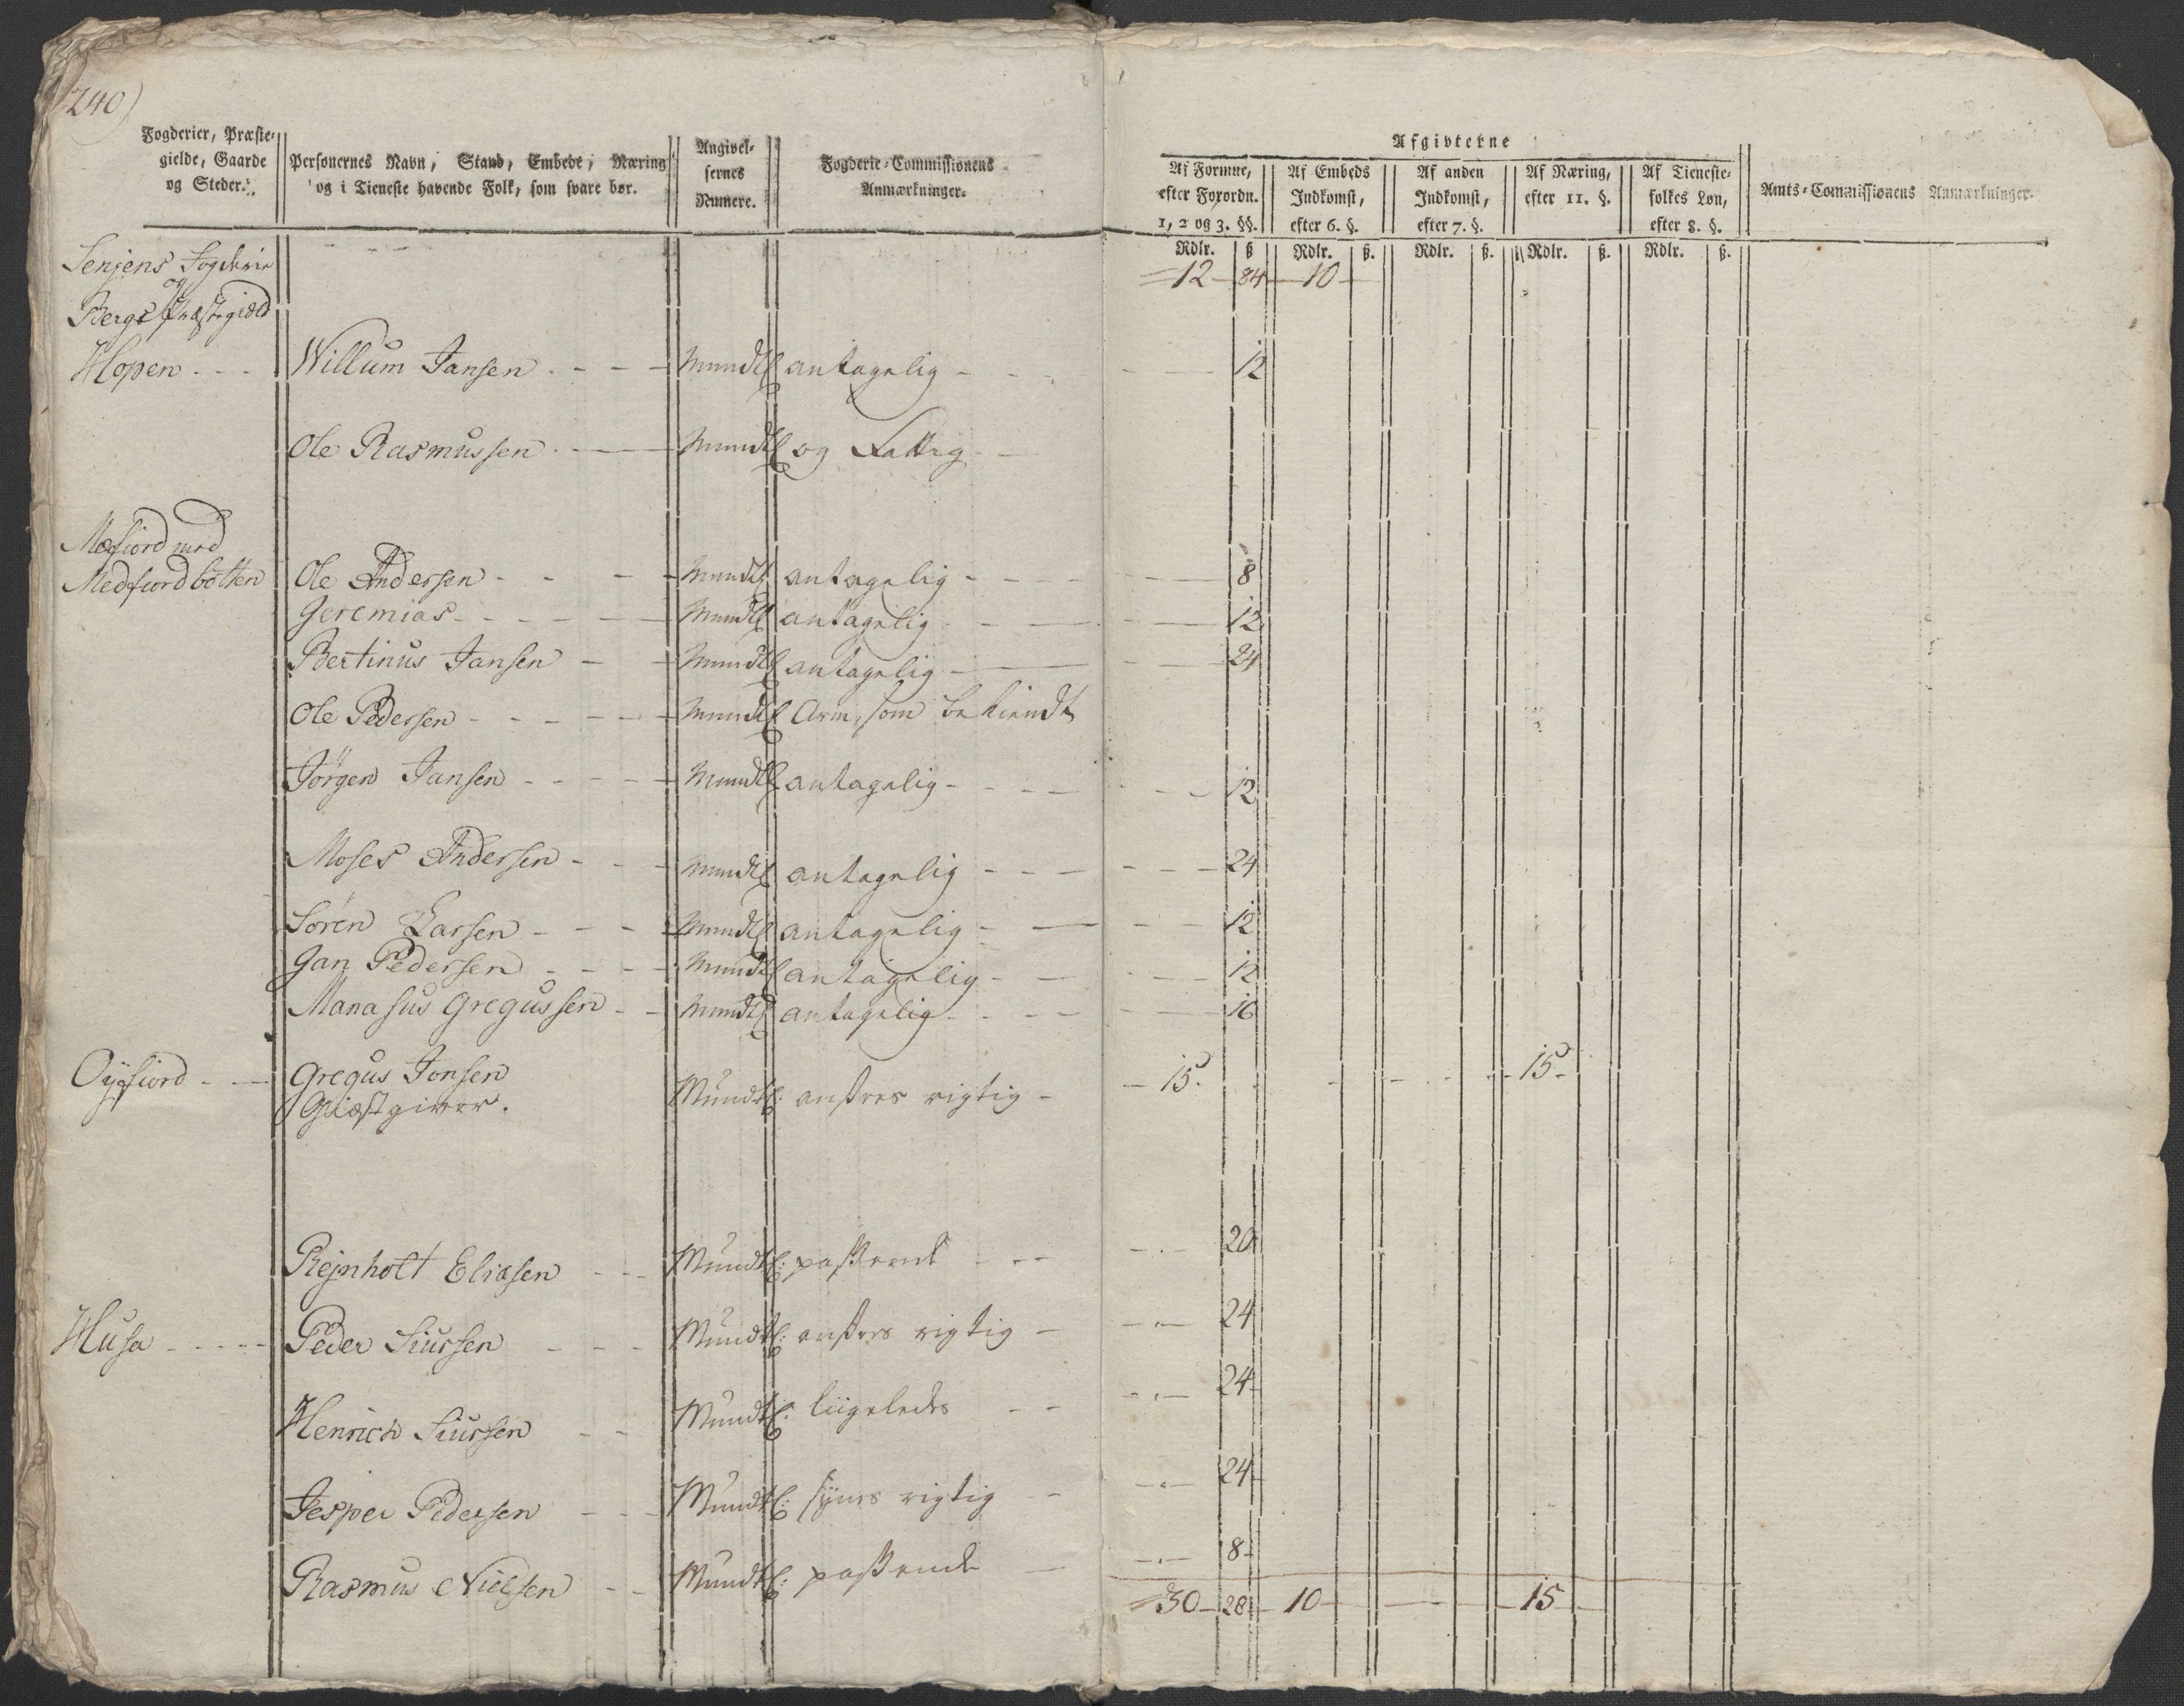 240)
Fogderier, Præste-
gielde, Gaarde
og Steder.
Personernes Navn, Stand, Embede, Næring
og i Tieneste havende Folk, som svare bør.
Angivel-
sernes
Numere.
Fogderie-Commissionens
Anmærkninger.
Afgivterne
Af Formue,
efter Forordn.
1, 2 og 3. §§.
Af Embeds
Indkomst,
efter 6. §.
Af anden
Indkomst,
efter 7. §.
Af Næring,
efter 11. §.
Af Tieneste-
folkes Løn,
efter 8. §.
Amts-Commissionens Anmærkninger.
Rdlr. ß Rdlr. ß. Rdlr. ß. Rdlr. ß. Rdlr. ß.
Senjens Fogderie - - - 12 - 84 - 10 -
og
Bergs Præstegield
Hopen - - - Willum Jansen - - - Mundtl antagelig - - - 12
Ole Rasmussen - - Mundtl og Fattig - -
Mefiord med
Medfiordbotten Ole Andersen - - - Mundtl antagelig - - - 8
Jeremias - - - - Mundtl antagelig - - - 12
Bertinus Jansen - - Mundtl antagelig - - - 24
Ole Pedersen - - - - Mundtl Arm, som bekiendt
Jörgen Jansen - - - - Mundtl antagelig - - - 12
Moses Andersen - - - Mundtl antagelig - - - 24
Sören Larsen - - - Mundtl antagelig - - - 12
Jan Pedersen - - - Mundtl antagelig - - - 12
Manasus Gregussen - - Mundtl antagelig - - - 16
Oÿfiord - - Gregus Jonsen
Giæstgiver. Mundtl: ansees rigtig - - 15. - - - - 15 -
Rejnholt Eliasen - - - Mundtl: passende - - - 20
Husa - - - - Peder Siursen - - - Mundtl: ansees rigtig - - - 24
Henrich Siursen - - Mundtl: liigeledes - - - 24
Jesper Pedersen - - - Mundtl: sÿnes rigtig - - - 24
Rasmus Nielsen - - Mundtl: passende - - 8
30 - 28 - 10 - - - 15 -